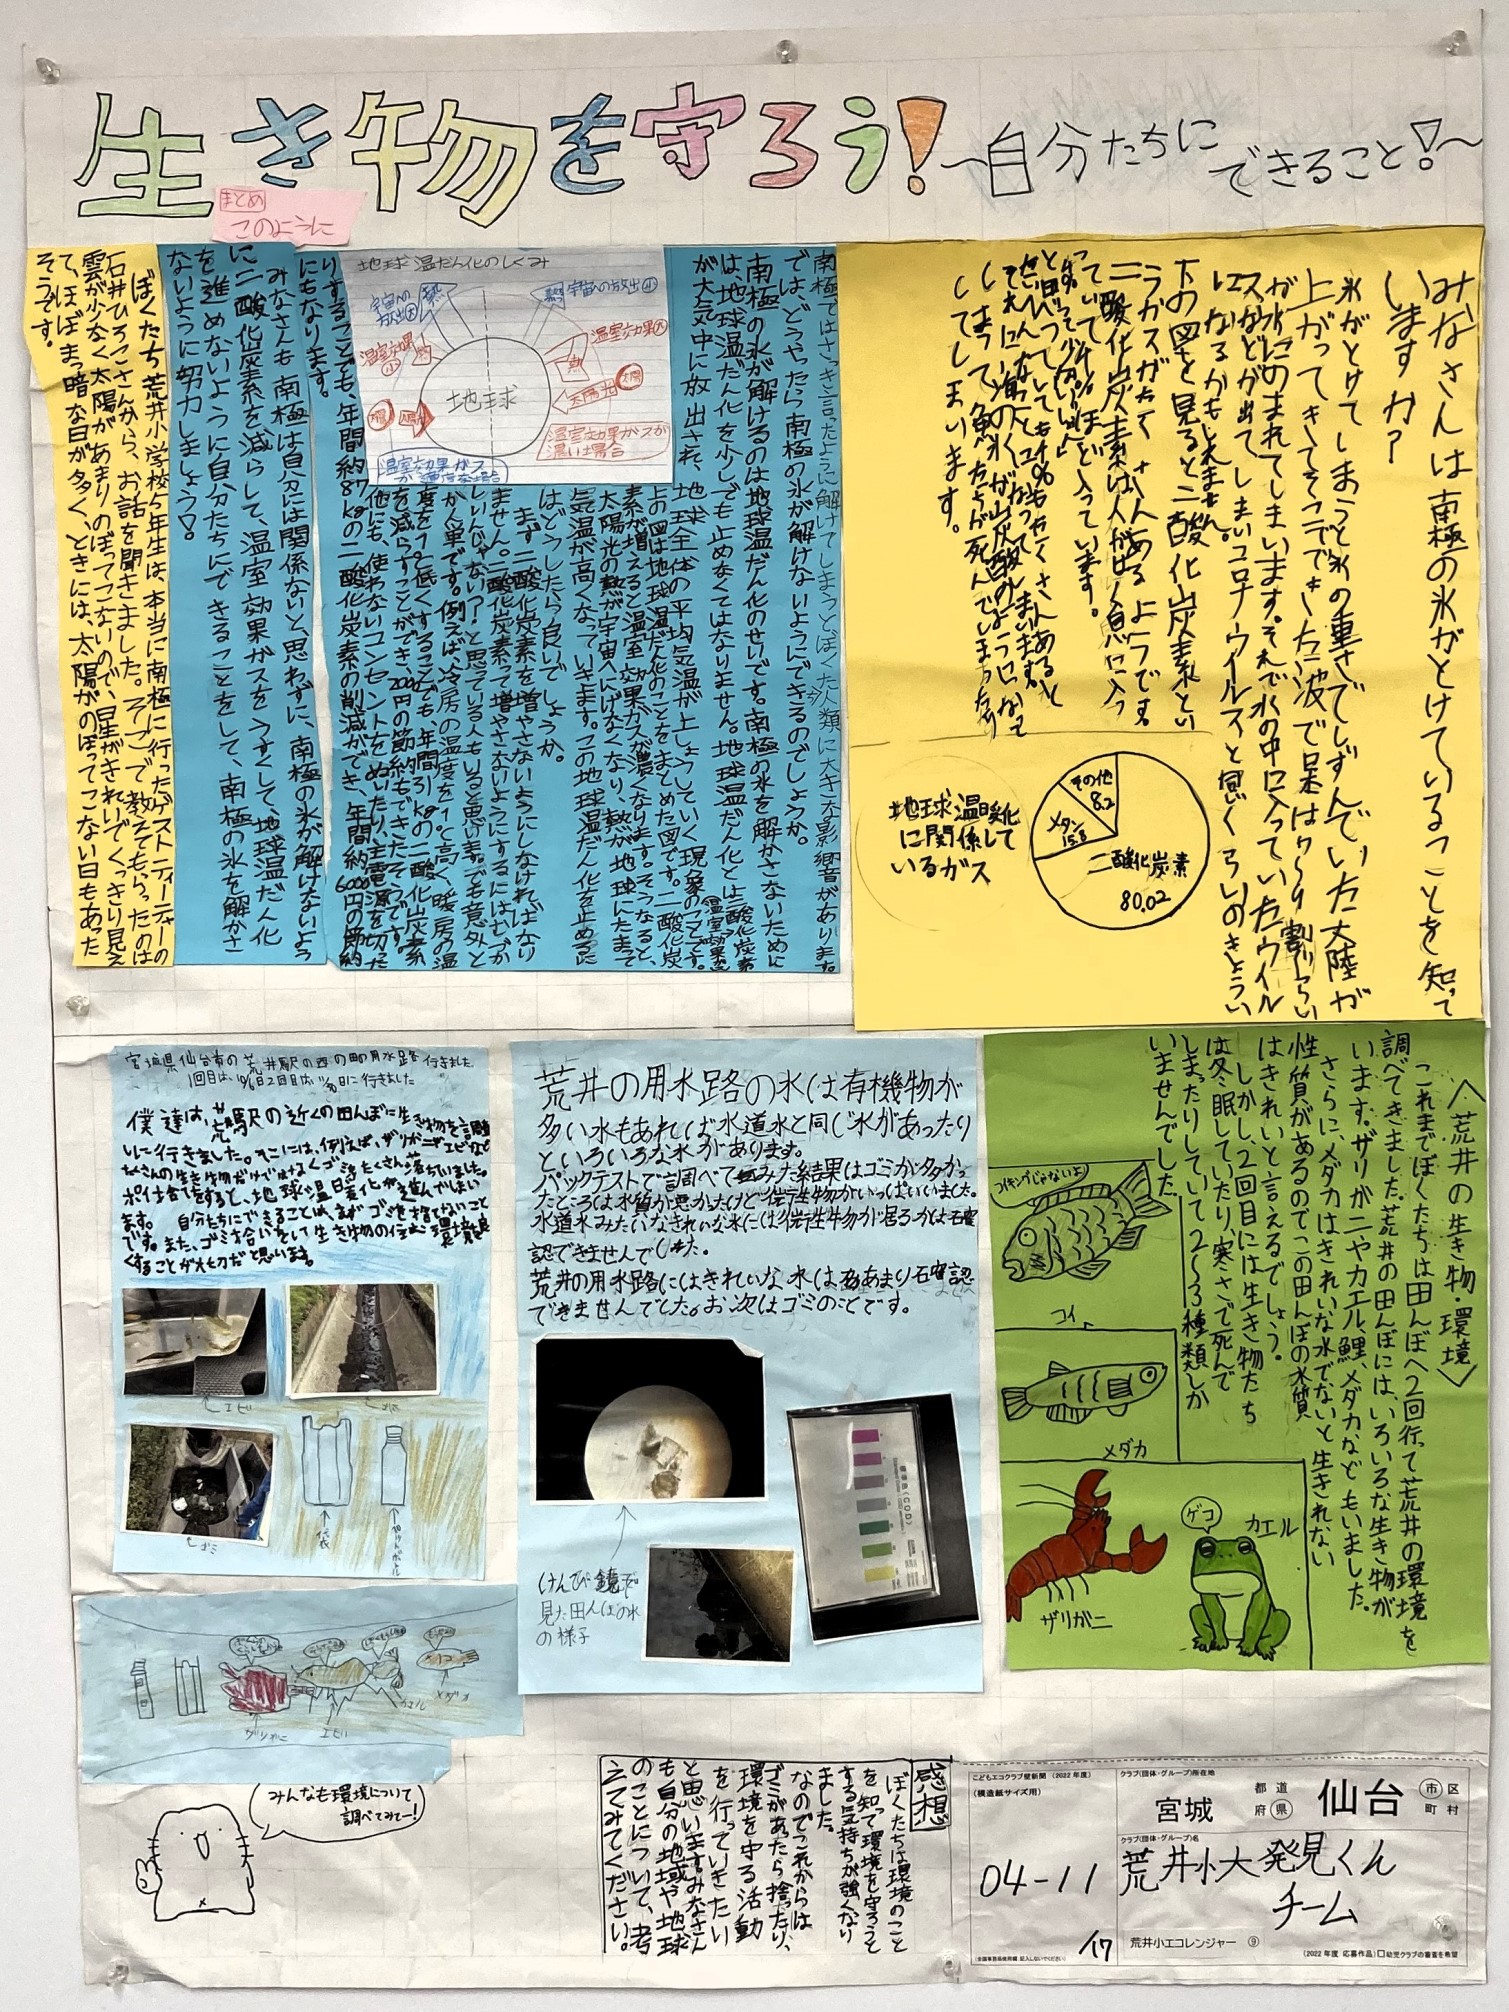 生き物を守ろう!
~自分たちにできること!~
みなさんは南極の氷がとけていることを知って
いますか?
氷がとけてしまうと氷の重さでしずんでいた大陸が
上がってきてそこでできた波で日本は
スなどが出てしまいコロナウイルスと同じくらいのきょうい
になるかもしれません。
下の図を見ると二酸化炭素とい
うガスがたくさんあるようです。
二酸化炭素は人がはく息に入っ
ていて4%ほど入っています。
しまって魚たちが死んでしまったり
してしまいます。
地球温暖化
に関係して
いるガス
その他
8.2
メタン
15.8
二酸化炭素
80.02
南極ではさっき言ったように解けてしまうとぼくた人類に大きな影響があります。
では、どうやったら南極の氷が解けないようにできるのでしょうか。
南極の氷が解けるのは地球温だん化のせいです。南極の氷を解かさないために
は、地球温だん化を少しでも止めなくてはなりません。地球温だん化とは二酸化炭素
が大気中に放出され、地球全体の平均気温が上しょうしていく現象のことです。
上の図は地球温だん化のことをまとめた図です。二酸化炭
素が増えると温室効果ガスが濃くなります。そうなると、
太陽光の熱が宇宙へにげなくなり、熱が地球にたまって
気温が高くなっていきます。この地球温だん化を止めるに
はどうしたら良いでしょうか。
まず二酸化炭素を増やさないようにしなければなり
ません。二酸化炭素って増やさないようにするにはむずか
しいんじゃない?と思っている人もいると思います。でも意外と
かん単です。例えば、冷房の温度を1℃高く、暖房の温
度を1℃低くすることでも、年間約31kgの二酸化炭素
を減らすことができ、2000円の節約もできたそうです。
他にも、使わないコンセントをぬいたり、主電源を切った
りすることでも、年間約87kgの二酸化炭素の削減ができ、年間約6000円の節約
にもなります。
地球温だん化のしくみ
地球
熱
宇宙への放出
熱
宇宙への放出小
温室効果大
熱
温室効果小
太陽光
太陽
温室効果ガスが
濃い場合
温室効果ガス
が適度な場合
まとめ
このように
みなさんも南極は自分には関係ないと思わずに、南極の氷が解けないよう
に二酸化炭素を減らして、温室効果ガスをうすくして、地球温だん化
を進めないように自分たちにできることをして、南極の氷を解かさ
ないように努力しましょう!
ぼくたち荒井小学校5年生は、本当に南極に行ったゲストティーチャーの
石井ひろこさんから、お話を聞きました。そこで教えてもらったのは
雲が少なく太陽があまりのぼってこないので、星がきれいでくっきり見え
て、ほぼまっ暗な日が多く、ときには、太陽がのぼってこない日もあった
そうです。
<荒井の生き物・環境>
これまでぼくたちは田んぼへ2回行って荒井の環境を
調べてきました。荒井の田んぼには、いろいろな生き物が
います。ザリガニやカエル、鯉、メダカなどもいました。
さらに、メダカはきれいな水でないと生きれない
性質があるのでこの田んぼの水質
はきれいと言えるでしょう。
しかし、2回目には生き物たち
は冬眠していたり、寒さで死んで
しまったりしていて2~3種類しか
いませんでした。
コイキングじゃないよ
コイ
メダカ
ザリガニ
ゲコ
カエル
荒井の用水路の水は有機物が
多い水もあれば水道水と同じ水があったり
といろいろな水があります。
パックテストで調べてみた結果はゴミが多かっ
たところは水質が悪かたけど微生物がいっぱいいました。
水道水みたいなきれいな水には微生物が居るかは確
認できませんでした。
荒井の用水路にはきれいな水はあまり確認
できませんでした。お次はゴミのことです。
けんび鏡で
見た田んぼの水
の様子
宮城県仙台市の荒井駅の西の田の用水路行きました。
僕達は、荒井駅の近くの田んぼに生き物を調査
しに行きました。そこには、例えば、ザリガニやエビなど
たくさんの生き物だけではなくゴミもたくさん落ちていました。
ポイ捨てをすると、地球温暖化が進んでしまい
ます。自分たちにできることは、まずゴミを捨てないこと
です。また、ゴミ拾いをして生き物の住む環境を良
くすることが大切だと思います。
エビ
ゴミ
ゴミ
袋
ペットボトル
ザリガニ
エビ
カエル
メダカ
みんなも環境について
調べてみてー!
感想
ぼくたちは環境のこと
を知って環境を守ろうと
する気持ちが強くなり
ました。
なのでこれからは
ゴミがあたら捨ったり、
環境を守る活動
を行っていきたい
と思います。みなさん
も自分の地域や地球
のことについて、考
えてみてください。
こどもエコクラブ壁新聞 (2022年度)
(模造紙サイズ用)
04-11
/17
クラブ(団体・グループ)所在地
宮城
都道
府県
仙台
市区
町村
クラブ(団体・グループ)名
荒井小大発見くん
チーム
荒井小エコレンジャー ⑨
(2022年度 応募作品)□幼児クラブの審査を希望